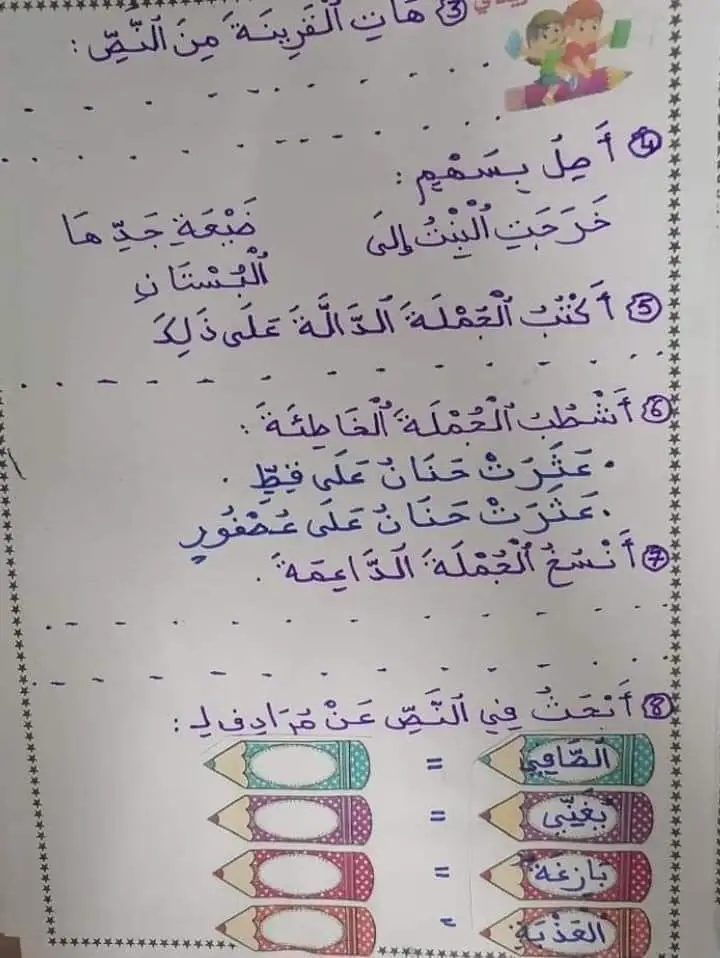 ③ هَاتِ الْقَرِينَةَ مِنَ النَّصِّ :
④ أَصِلُ بِسَهْمٍ :
خَرَجَتِ الْبِنْتُ إِلَى ضَيْعَةِ جَدِّهَا
الْبُسْتَانِ
⑤ أَكْتُبُ الْجُمْلَةَ الدَّالَّةَ عَلَى ذَلِكَ
⑥ أَشْطُبُ الْجُمْلَةَ الْخَاطِئَةَ :
• عَثَرَتْ حَنَانُ عَلَى قِطٍّ .
• عَثَرَتْ حَنَانُ عَلَى عُصْفُورٍ
⑦ أَنْسَخُ الْجُمْلَةَ الدَّاعِمَةَ .
⑧ أَبْحَثُ فِي النَّصِّ عَنْ مُرَادِفٍ لِ :
الصَّافِي =
يُغَنِّي =
بَازِغَة =
العَذْبَة =